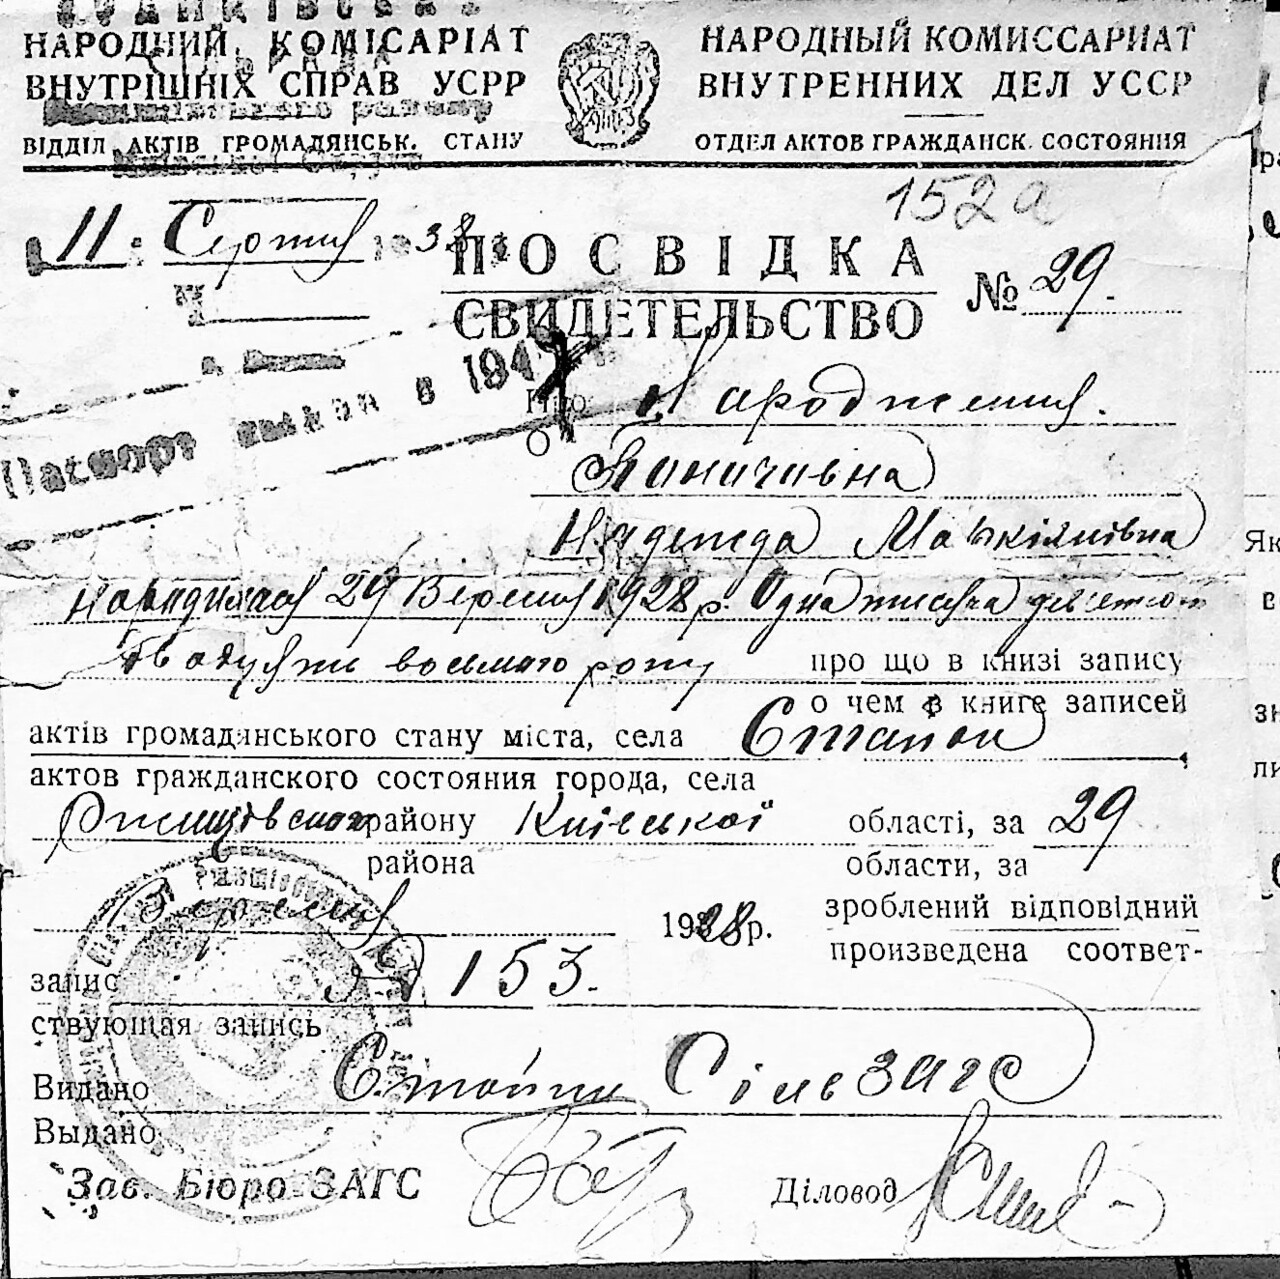 НАРОДНИЙ КОМІСАРІАТ
ВНУТРІШНІХ СПРАВ УСРР
ВІДДІЛ АКТІВ ГРОМАДЯНСЬК. СТАНУ
НАРОДНЫЙ КОМИССАРИАТ
ВНУТРЕННИХ ДЕЛ УССР
ОТДЕЛ АКТОВ ГРАЖДАНСК. СОСТОЯНИЯ
152а
11 Серпня 1938
ПОСВІДКА
СВИДЕТЕЛЬСТВО
№ 29.
Паспорт выдан в 194
Про Народження.
О
Надежда
народилась 29 Вересня 1928 р. Одна тисяча девятсот
двадцять восьмого року про що в книзі запису
о чем в книге записей
актів громадянського стану міста, села Стайки
актов гражданского состояния города, села
Ржищівського району Київської області, за 29
района области, за
Вересня 1928 р. зроблений відповідний
произведена соответ-
запис № 153.
ствующая запись
Видано Стайки Сільзагс
Выдано
Зав. Бюро ЗАГС Діловод